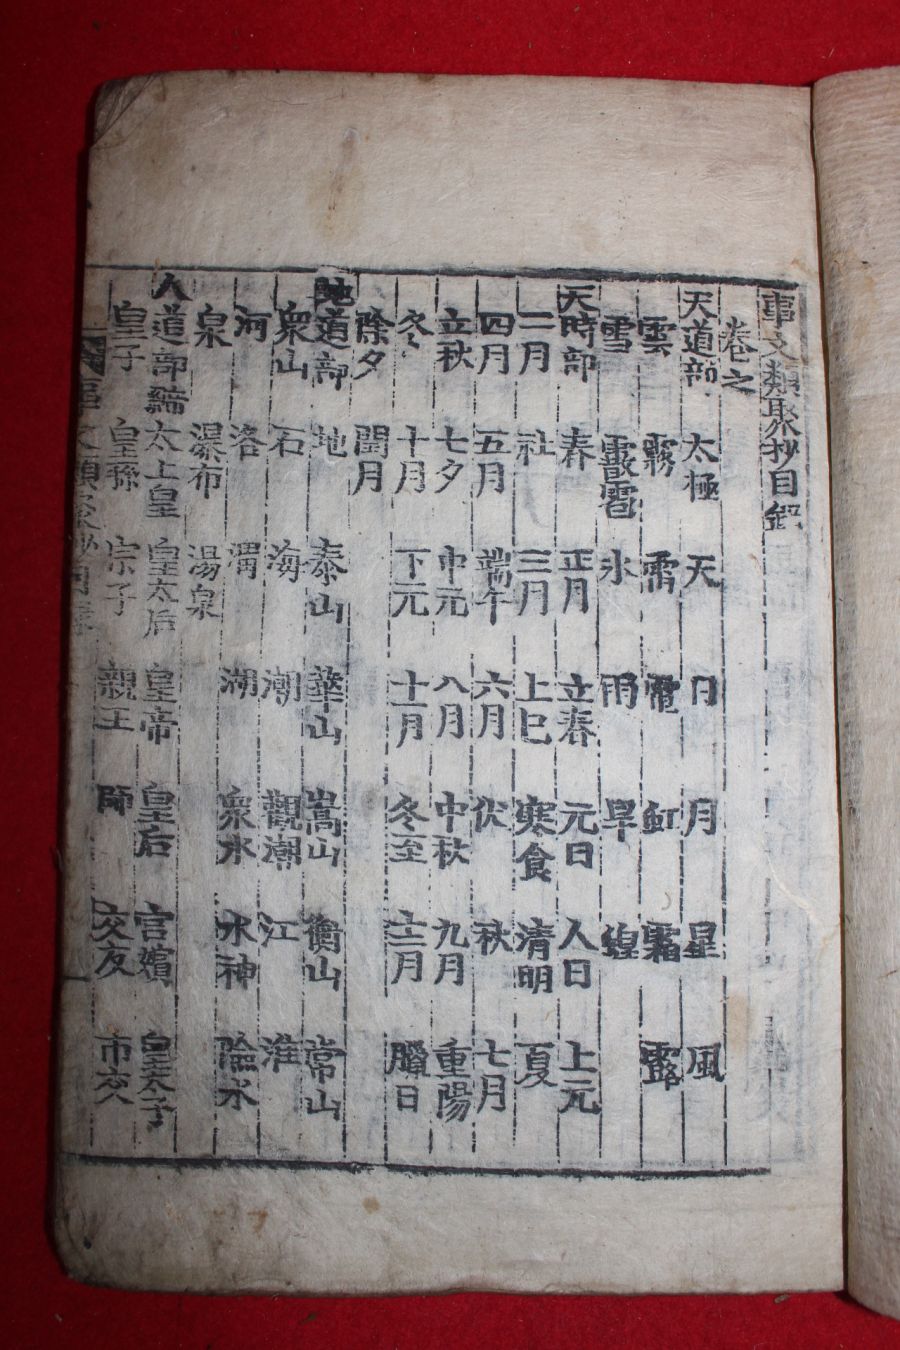 事文類聚抄目錄
卷之
天道部 太極 天 日 月 星 風
雲 霧 雷 電 虹 霜 露
雪 霰雹 氷 雨 旱 蝗
天時部 春 正月 立春 元日 人日 上元
二月 社 三月 上巳 寒食 清明 夏
四月 五月 端午 六月 伏 秋 七月
立秋 七夕 中元 八月 中秋 九月 重陽
冬 十月 下元 十一月 冬至 十二月 臘日
除夕 閏月
地道部 地 泰山 華山 嵩山 衡山 常山
衆山 石 海 潮 觀潮 江 淮
河 洛 渭 湖 衆水 水神 險水
泉 瀑布 湯泉
人道部 太上皇 皇太后 皇帝 皇后 宮嬪 皇太子
皇子 皇孫 宗子 親王 師 交友 市交
事文類聚抄目錄 一